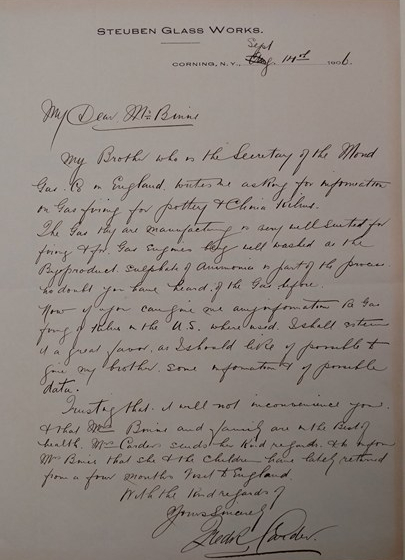 STEUBEN GLASS WORKS.
Sept
CORNING, N.Y., Aug. 14th 1906.
My Dear Mr Binns
My Brother who is the Secretary of the Mond
Gas Co in England, writes me asking for information
on Gas firing for pottery & China Kilns.
The Gas they are manufacturing is very well suited for
firing & for Gas Engines being well washed as the
Byproduct Sulphate of Ammonia is part of the process
no doubt you have heard of the Gas before.
Now if you can give me any information re Gas
firing & Kilns in the U.S. where used. I shall esteem
it a great favor, as I should like if possible to
give my brother some information & if possible
data.
Trusting that it will not inconvenience you
& that Mrs Binns and family are in the best of
health. Mrs Carder sends her Kind regards. & to inform
Mrs Binns that she & the Children have lately returned
from a four months visit to England.
With the Kind regards of
Yours Sincerely
Fredk Carder.